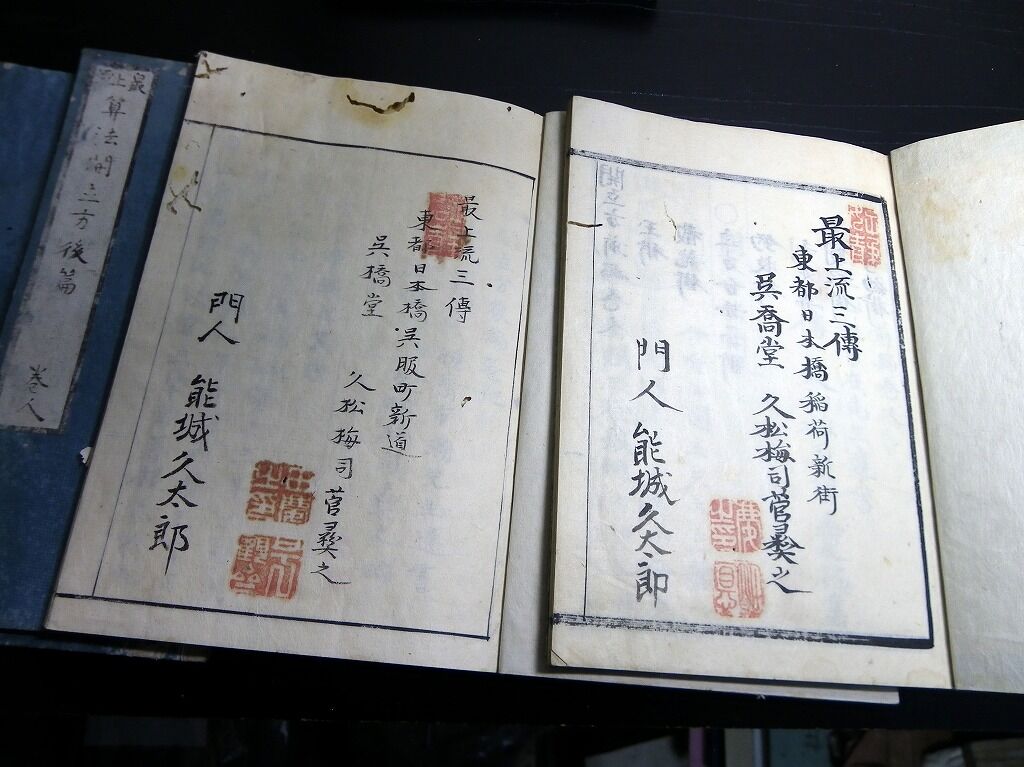 最上流
算法開立方後篇
巻人
最上流三傳
東都日本橋呉服町新道
呉橋堂
久松梅司菅彛之
門人
能城久太郎
最上流三傳
東都日本橋稲荷新街
呉喬堂
久松梅司菅彛之
門人
能城久太郎